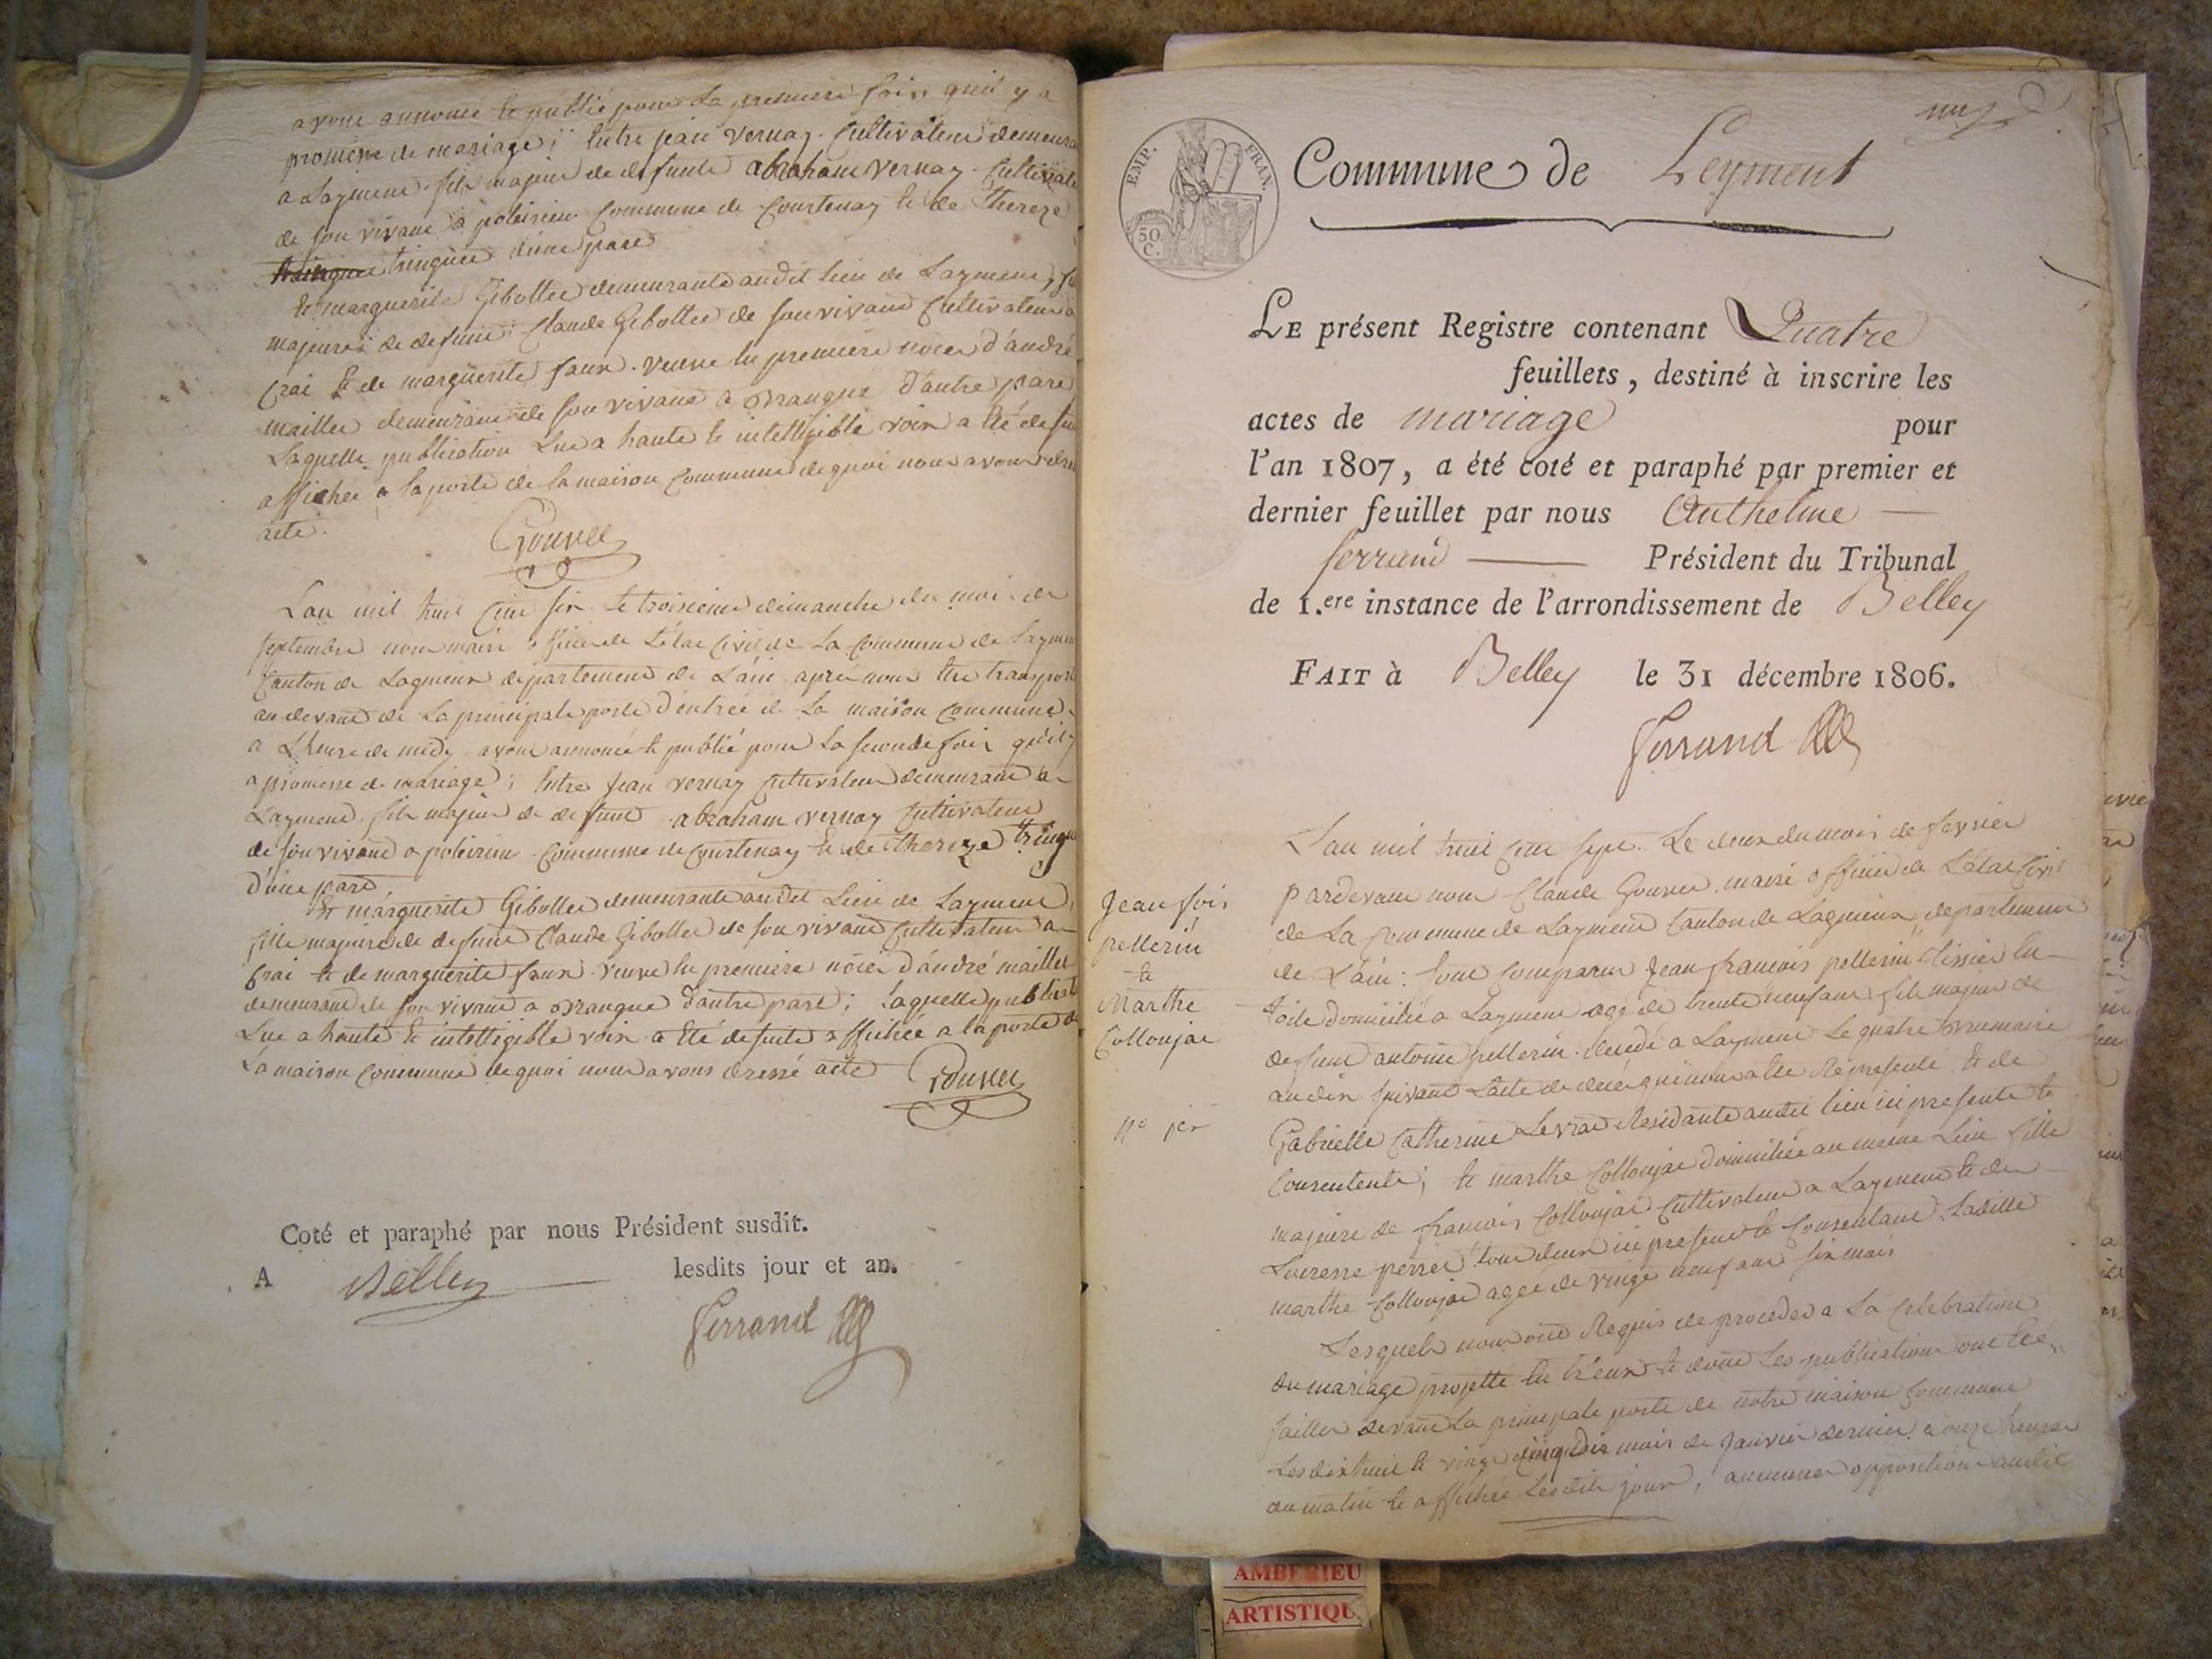 avons annoncé et publié pour la premiere fois quil y a
promesse de mariage ; Entre jean vernay cultivateur demeurant
a Laymens fils majeur de defunts abraham vernay cultivateur
de son vivant a poleirieu commune de courtenay et de thereze
tringuier d'une part
et marguerite Gibollet demeurante audit lieu de Laymens, fille
majeure de defunt Claude Gibollet de son vivant cultivateur a
Crai et de marguerite faux veuve en premiere noces d'andré
maillet demeurant de son vivant a Brangue d'autre part
Laquelle publication Lue a haute et intelligible voix a été de suite
affichée a la porte de la maison commune de quoi nous avons dressé
acte.
Gouvee
L'an mil huit cent six le troisieme dimanche du mois de
septembre nous maire officier de L'état civil de La commune de Laymens
canton de Lagnieux departement de L'ain aprés nous être transporté
au devant de La principale porte d'entrée de La maison commune
a L'heure de midy avons annoncé et publié pour La seconde fois qu'il y
a promesse de mariage ; Entre jean vernay cultivateur demeurant a
Laymens fils majeur de defunt abraham vernay cultivateur
de son vivant a poleirieu commune de courtenay et de thereze tringuier
d'une part,
Et marguerite Gibollet demeurante audit Lieu de Laymens,
fille majeure de defunt Claude Gibollet de son vivant cultivateur a
Crai et de marguerite faux veuve en premiere noces d'andré maillet
demeurant de son vivant a Brangue d'autre part ; Laquelle publication
Lue a haute et intelligible voix a été de suite affichée a la porte de
La maison commune de quoi nous avons dressé acte
Gouvee
Coté et paraphé par nous Président susdit.
A Belley lesdits jour et an.
Ferrand
EMP. FRAN.
50 C.
Commune de Leyment
LE présent Registre contenant Quatre
feuillets, destiné à inscrire les
actes de mariage pour
l'an 1807, a été coté et paraphé par premier et
dernier feuillet par nous Anthelme
ferrand Président du Tribunal
de 1.ere instance de l'arrondissement de Belley
FAIT à Belley le 31 décembre 1806.
Ferrand
Jean fois
pellerin
et
Marthe
Collonjat
no per
L'an mil huit cent sept Le deux du mois de fevrier
pardevant nous Claude Gouvee maire officier de L'état civil
de La commune de Laymens canton de Lagnieux departement
de L'ain : sont comparus Jean francois pellerin tissier en
toile domicilié a Laymens agé de trente neuf ans fils majeur de
defunt antoine pellerin decedé a Laymens Le quatre brumaire
an dix suivant L'acte de decés qui nous a été Representé et de
Gabrielle Catherine Levrat Residante audit lieu ici presente et
consentente ; et marthe Collonjat domiciliée au meme Lieu fille
majeure de francois Collonjat cultivateur a Laymens et de
Lucresse perrier tous deux ici present et consentant Ladite
marthe Collonjat agée de vingt neuf ans six mois
Lesquels nous ont Requis de proceder a La Celebration
du mariage projetté entr'eux et dont Les publications ont été
faittes devant La principale porte de notre maison commune
Les dix huit et vingt cinq du mois de janvier dernier a onze heures
du matin et affichée Lesdits jour, aucune opposition audit
AMBERIEU
ARTISTIQU